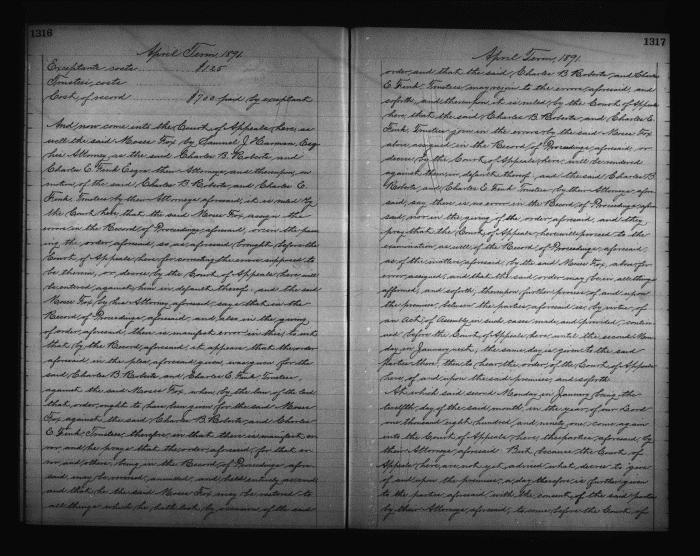 1316
April Term 1891
Exceptants costs $1.25
Trustees costs
Cost of record $7.00 paid by exceptant
And now come into the Court of Appeals, here, as
well the said Moses Fox by Samuel J. Harman, Esq
his Attorney, as the said Charles B. Roberts, and
Charles E. Fink Esqrs their Attorneys and thereupon, on
motion of the said Charles B. Roberts and Charles E.
Fink Trustees by their Attorneys aforesaid, it is ruled by
the Court here, that the said Moses Fox assign the
errors in the Record of Proceedings aforesaid, or in the pass
ing the order aforesaid, so as aforesaid brought before the
Court of Appeals here, for correcting the errors supposed to
be therein, or, decree by the Court of Appeals here, will
be entered against him in default thereof, and the said
Moses Fox by his Attorney aforesaid, says that in the
Record of Proceedings aforesaid, and also in the giving
of order, aforesaid, there is manifest error in this, to wit
that by the Record, aforesaid, it appears that the order
aforesaid in the plea, aforesaid given, was given for the
said Charles B. Roberts, and Charles E. Fink Trustees,
against the said Moses Fox, when by the law of the land
that order, ought to have been given for the said Moses
Fox against the said Charles B. Roberts, and Charles
E. Fink Trustees, therefore in that there is manifest er
ror, and he prays that the order, aforesaid, for that er
ror, and others, being in the Record of Proceedings, afore
said, may be reversed, annulled, and held entirely as void
and that he the said Moses Fox may be restored to
all things which he hath lost by occasion of the said
1317
April Term, 1891
order, and that the said Charles B. Roberts, and Charles
E. Fink Trustees, may rejoin to the errors, aforesaid, and
soforth, and thereupon, it is ruled by the Court of Appeals
here, that the said Charles B. Roberts, and Charles E.
Fink Trustees join in the errors by the said Moses Fox
above, assigned in the Record of Proceedings, aforesaid, or
decree by the Court of Appeals here, will be rendered
against them in default thereof, and the said Charles B.
Roberts, and Charles E. Fink Trustees by their Attorneys afore
said, say there is no error in the Record of Proceedings, afore
said, nor in the giving of the order, aforesaid, and they
pray that the Court of Appeals here will proceed to the
examination as well, of the Record of Proceedings, aforesaid,
as of the matters aforesaid, by the said Moses Fox, above for
error, assigned, and that the said order may be in all things
affirmed, and soforth, thereupon further process of and upon
the premises, between the parties aforesaid is, by virtue of
an Act of Assembly in such cases made and provided, contin
ued before the Court of Appeals here, until the second Mon
day in January next, the same day is given to the said
parties there, then to hear the order, of the Court of Appeals
here, of and upon the said premises, and soforth
At which said second Monday in January being the
twelfth day of the said month, in the year of our Lord
one thousand eight hundred, and ninety one, come again
into the Court of Appeals, here, the parties, aforesaid, by
their Attorneys aforesaid But because the Court of
Appeals here, are not yet advised what decree to give
of and upon the premises, a day therefore is further given
to the parties aforesaid with the consent of the said parties
by their Attorneys, aforesaid, to come before the Court of